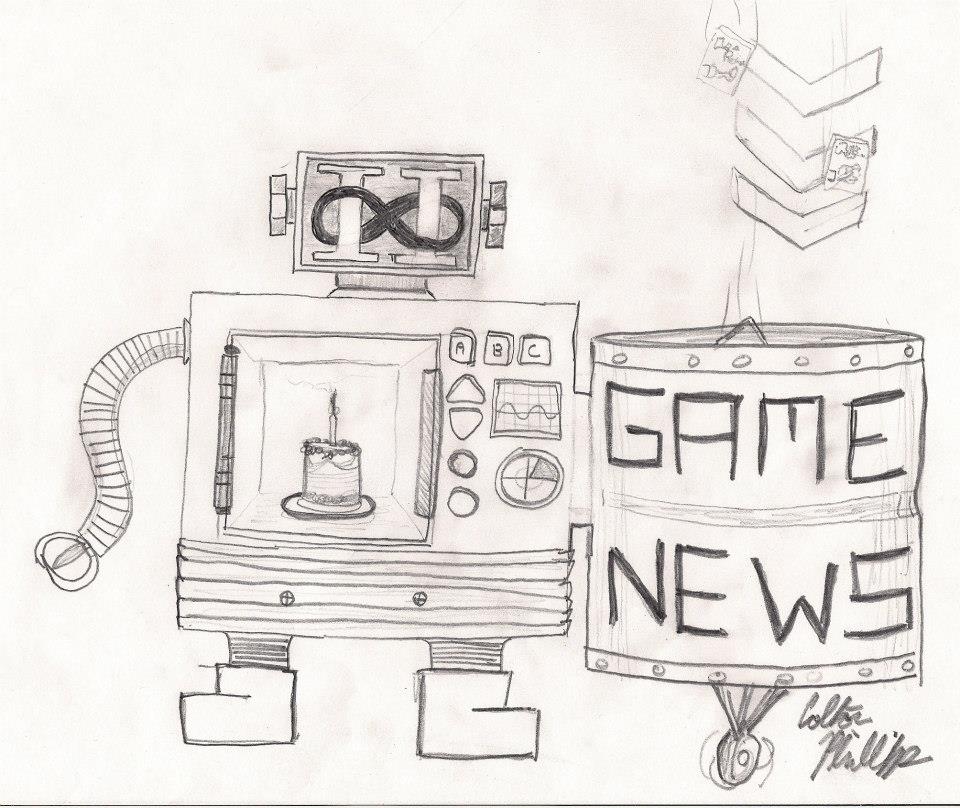 II
A B C
GAME
NEWS
Colton
Phillips